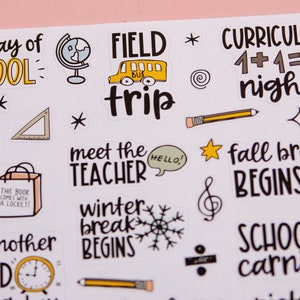 ay of
OOL
FIELD
BUS
trip
CURRICUL
1+1=
nigh
meet the
TEACHER
HELLO!
fall br
BEGINS
THIS BOOK
COMES WITH
A LOCKET!
winter
break
BEGINS
nother
D
SCHOO
carni